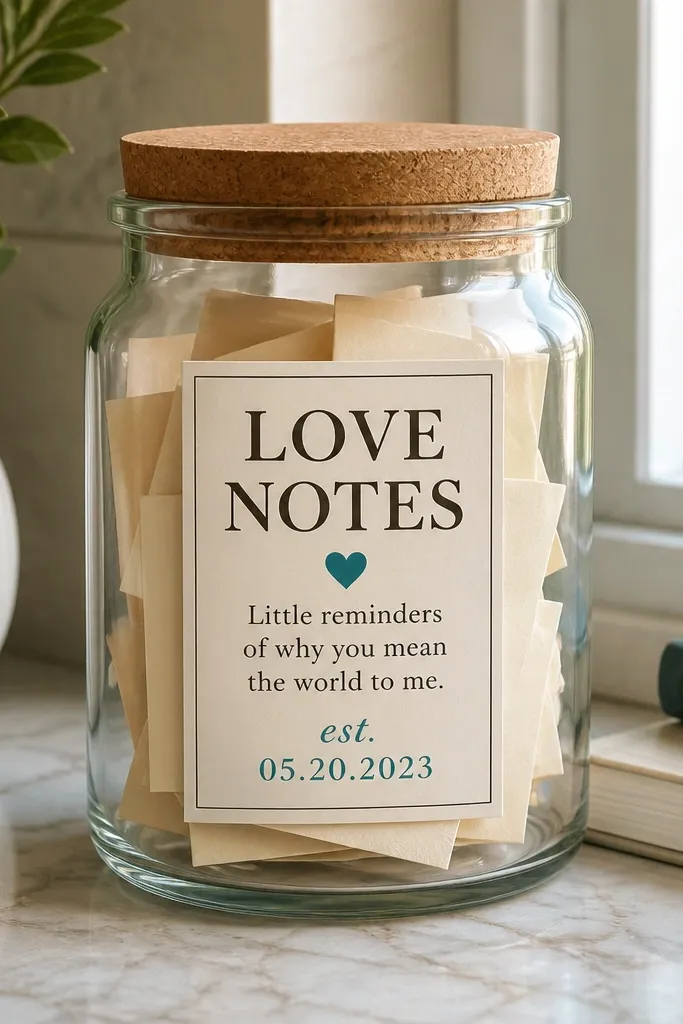 LOVE
NOTES
Little reminders
of why you mean
the world to me.
est.
05.20.2023